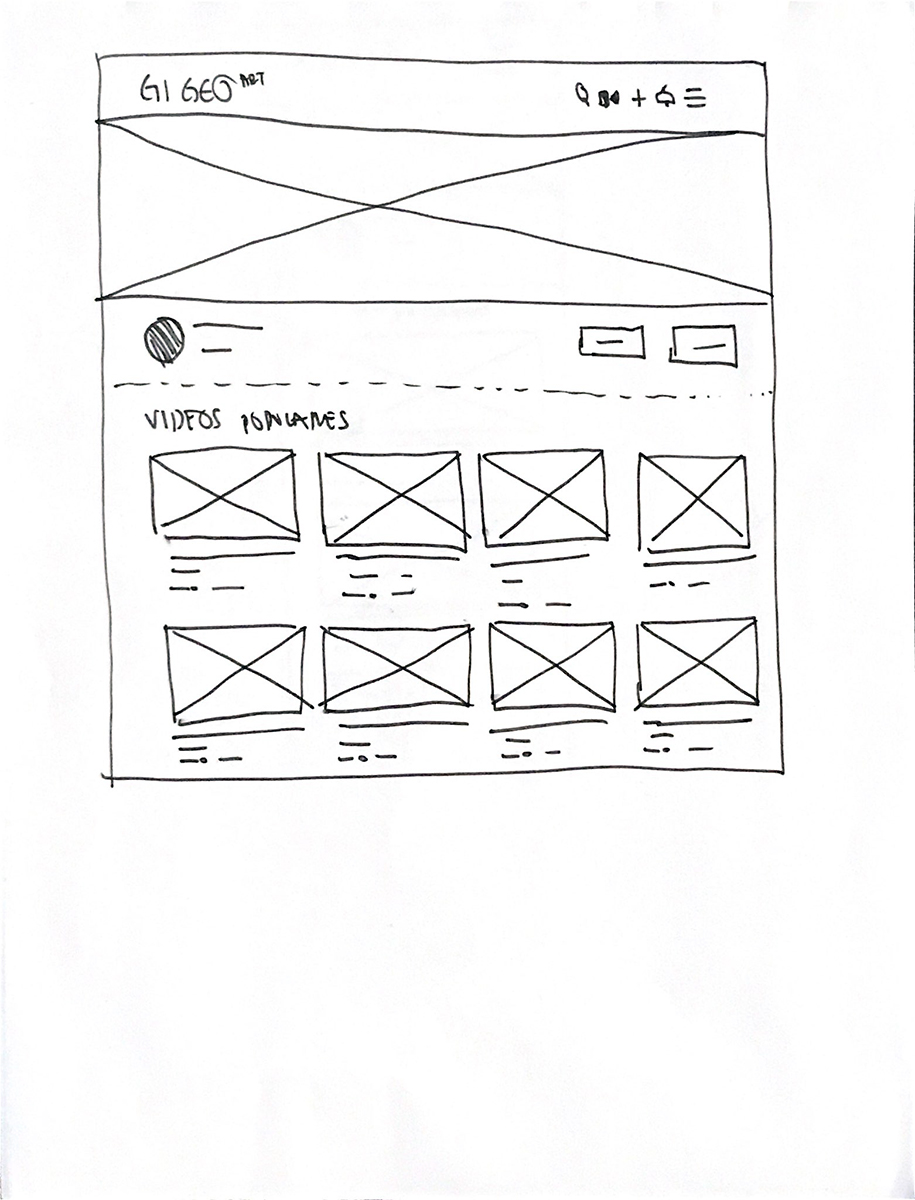 GI GEO ART
VIDEOS POPULARES